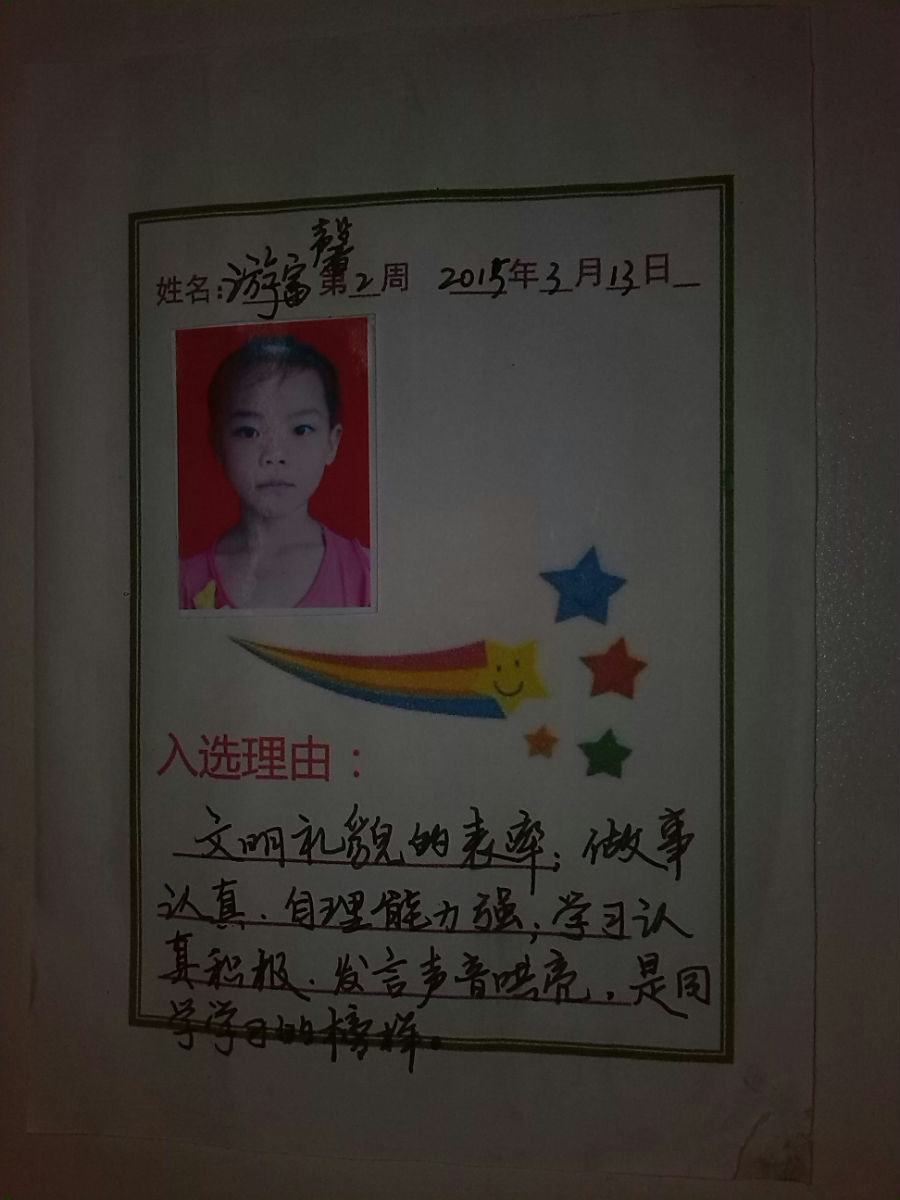 姓名:游富馨 第2周 2015年3月13日
入选理由：
文明礼貌的表率；做事
认真、自理能力强；学习认
真积极、发言声音哄亮，是同
学学习的榜样。